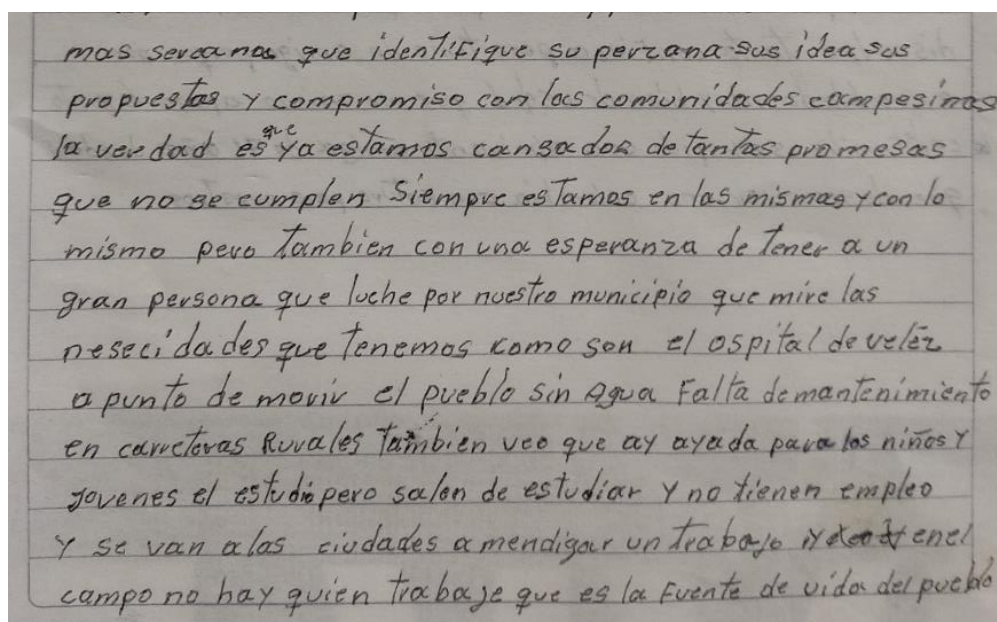 mas sercana que identifique su perzana sus idea sus
propuestas y compromiso con las comunidades campesinas
la verdad es que ya estamos cansados de tantas promesas
que no se cumplen Siempre estamos en las mismas y con lo
mismo pero tambien con una esperanza de tener a un
gran persona que luche por nuestro municipio que mire las
nesecidades que tenemos komo son el ospital de veléz
a punto de morir el pueblo sin Agua Falta de mantenimiento
en carreteras Rurales Tambien veo que ay ayuda para los niños Y
Jovenes el estudio pero salen de estudiar Y no tienen empleo
Y se van a las ciudades a mendigar un trabajo y en el
campo no hay quien trabaje que es la Fuente de vida del pueblo